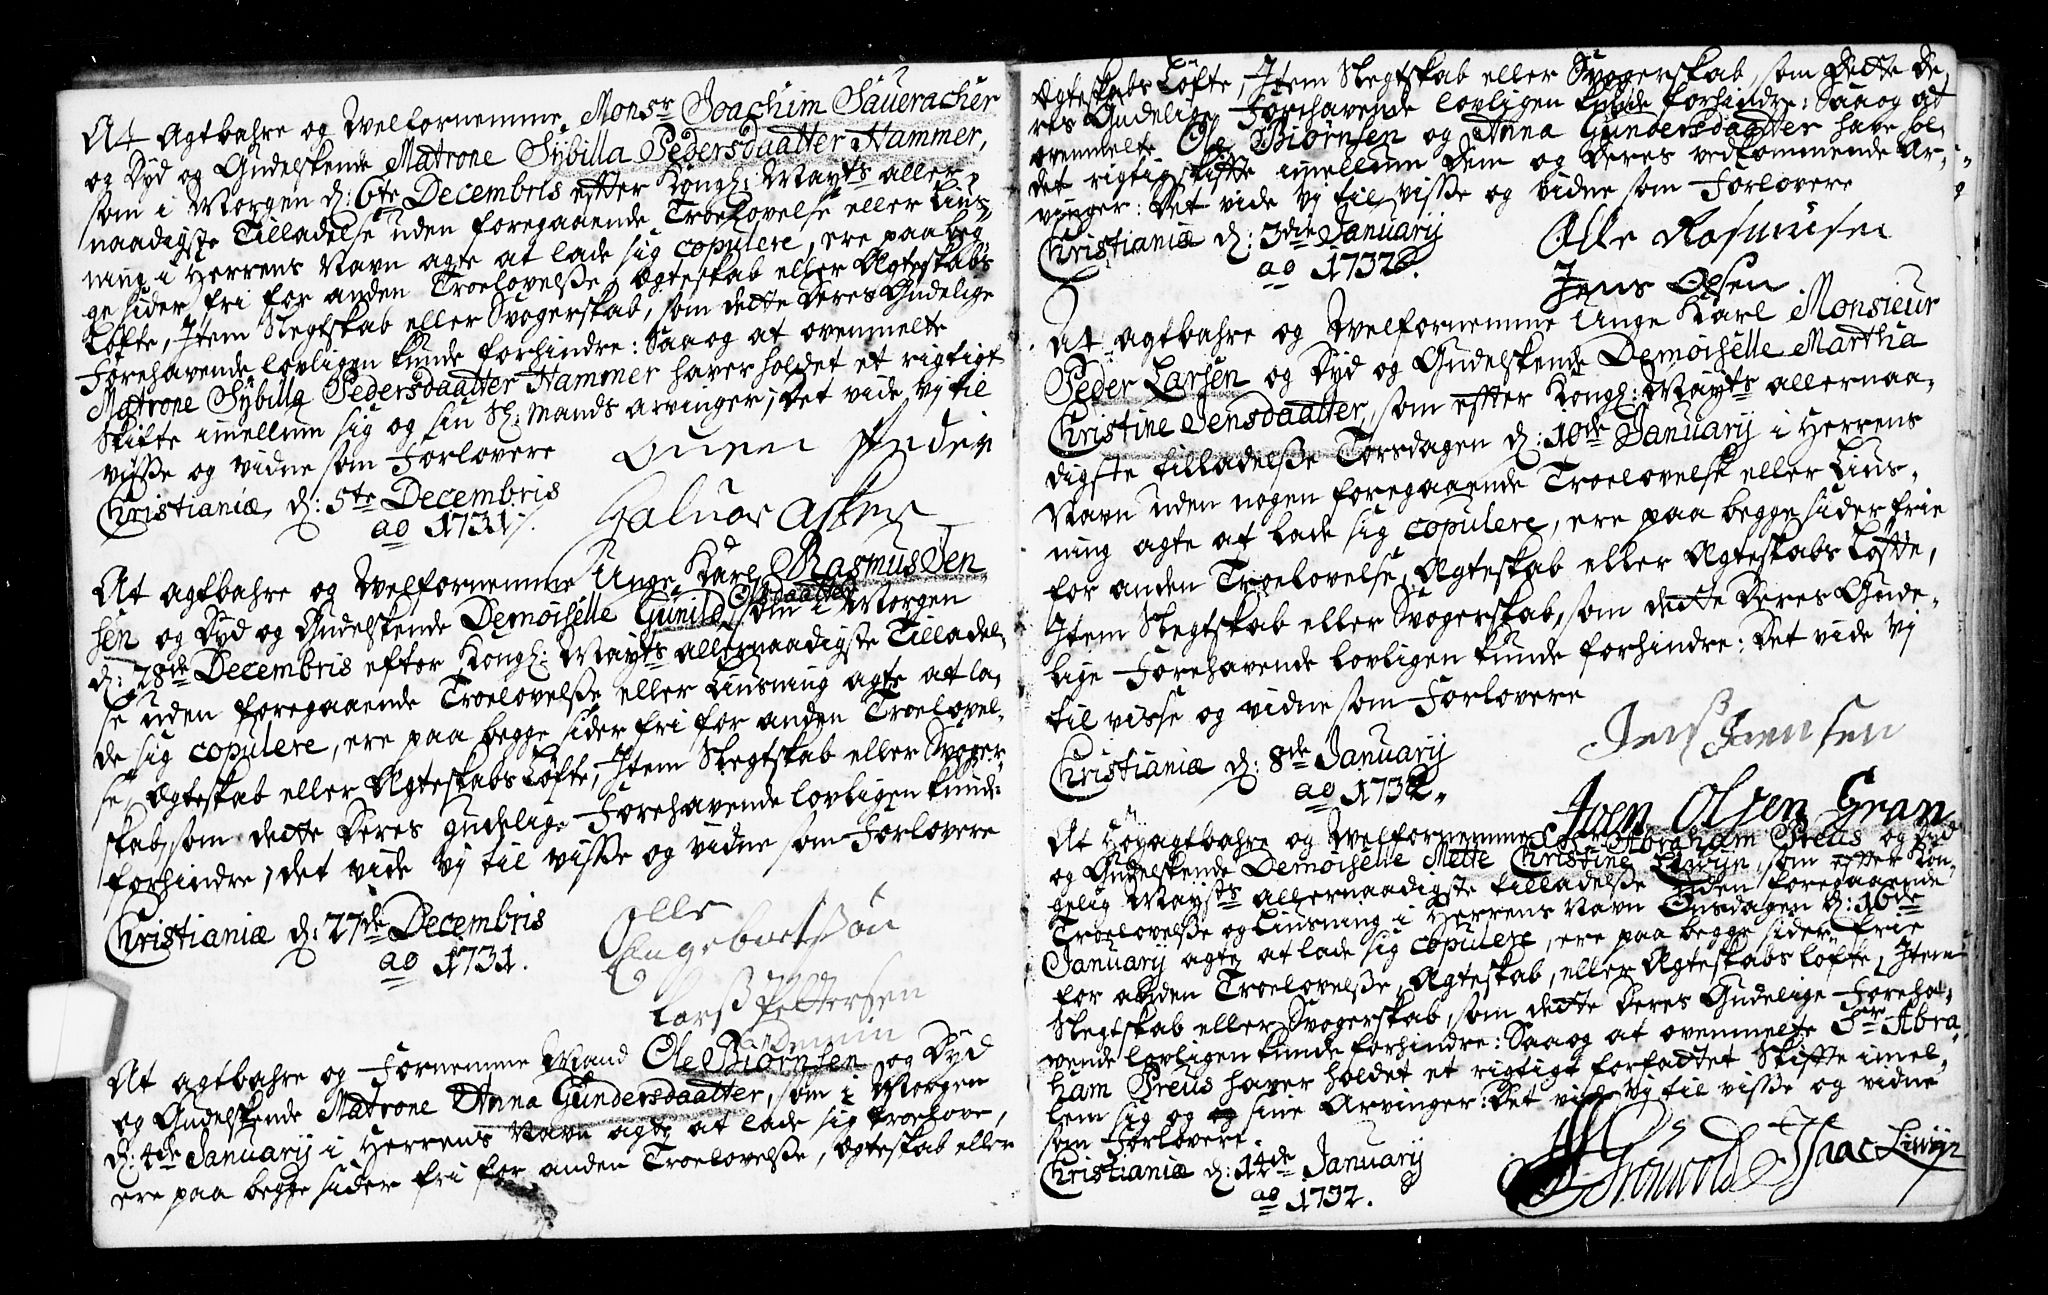 At Agtbahre og Velfornemme Monsr Joachim Saueracher
og Dyd og Gudelskende Matrone Sybilla Pedersdaatter Hammer,
som i Morgen d: 6te Decembris effter Kongl: Mayts aller,
naadigste Tilladelse uden foregaaende Troelovelse eller Lius,
ning i Herrens Navn agte at lade sig copulere, ere paa beg
ge sider fri for anden Troelovelsße, Ægteskab eller Ægteskabs
Løfte, Item Slegtskab eller Svogerskab, som dette Deres Gudelige
Forehavende lovligen kunde forhindre: Saa og at ovenmelte
Matrone Sybilla Pedersdaatter Hammer haver holdet et rigtigt
Skifte imellum sig og sin Sl: Mands Arvinger, Det vide Vj til
visße og vidne som Forlovere
Christianiæ d: 5te Decembris
ao 1731
At agtbahre og Velfornemme Unge Karl Rasmus Jen
sen og Dyd og Gudelskende Demoiselle Gunild Olsdaatter som i Morgen
d: 28de Decembris efter Kongl: Mayts allernaadigste Tilladel,
se uden foregaaende Troelovelsße eller Liusning agte at la,
de sig copulere, ere paa begge sider fri for anden Troelovel,
se, Ægteskab eller Ægteskabs Løfte, Item Slegtskab eller Svoger,
skab, som dette Deres gudelige Forehavende lovligen kunde
forhindre, det vide Vj til visße og vidne som Forlovere
Christianiæ d: 27de Decembris
ao 1731.
Olle
Engebretßøn
Larß Pettersen
At agtbahre og Fornemme Mand Ole Biørnsen og Dyd
og Gudelskende Matrone Anna Gundersdaatter, som i Morgen
d: 4de Januarij i Herrens Navn agte at lade sig troelove,
ere paa begge sider fri for anden Troelovelsße, Ægteskab eller
Ægteskabs Løfte, Item Slegtskab eller Svogerskab, som Dette De,
res Gudelige Forehavende lovligen kunde forhindre: Saa og at
ovenmelte Ole Biørnsen og Anna Gundersdaatter have hol,
det rigtig skifte imellum Dem og Deres vedkommende Ar,
vinger: Det vide Vj til visße og vidne som Forlovere
Christianiæ d: 3die Januarij
ao 1732.
Olle Rasmusen
Jens Olsen
At agtbahre og Velfornemme Unge Karl Monsieur
Peder Larsen og Dyd og Gudelskende Demoiselle Martha
Christine Jensdaatter, som effter Kongl: Mayts allernaa,
digste tilladelsße Torsdagen d: 10de Januarij i Herrens
Navn uden nogen foregaaende Troelovelse eller Lius,
ning agte at lade sig copulere, ere paa begge sider frie
for anden Troelovelse, Ægteskab eller Ægteskabs Løfte,
Item Slegtskab eller Svogerskab, som dette Deres Gude,
lige Forehavende lovligen kunde forhindre: Det vide Vj
til visse og vidne som Forlovere
Christianiæ d: 8de Januarij
ao 1732.
Jenß Jensen
Joen Olsen Gran
At Høyagtbahre og Velfornemme Sr Abraham Preus og Dyd
og Gudelskende Demoiselle Mette Christine Liwijn, som effter Kon,
gelig Mayts allernaadigste tilladelsße uden foregaaende
Troelovelsße og Liusning i Herrens Navn Onsdagen d: 16de
Januarij agte at lade sig copulere, ere paa begge sider frie
for anden Troelovelsße, Ægteskab, eller Ægteskabs løfte, Item
Slegtskab eller Svogerskab, som dette Deres Gudelige Foreha,
vende lovligen kunde forhindre: Saa og at ovenmelte Sr Abra,
ham Preus haver holdet et rigtigt forfattet Skiffte imel,
lem sig og sine Arvinger: Det vide Vj til visße og vidne
som Forlovere.
Christianiæ d: 14de Januarij
ao 1732.
Isaac Liwijn